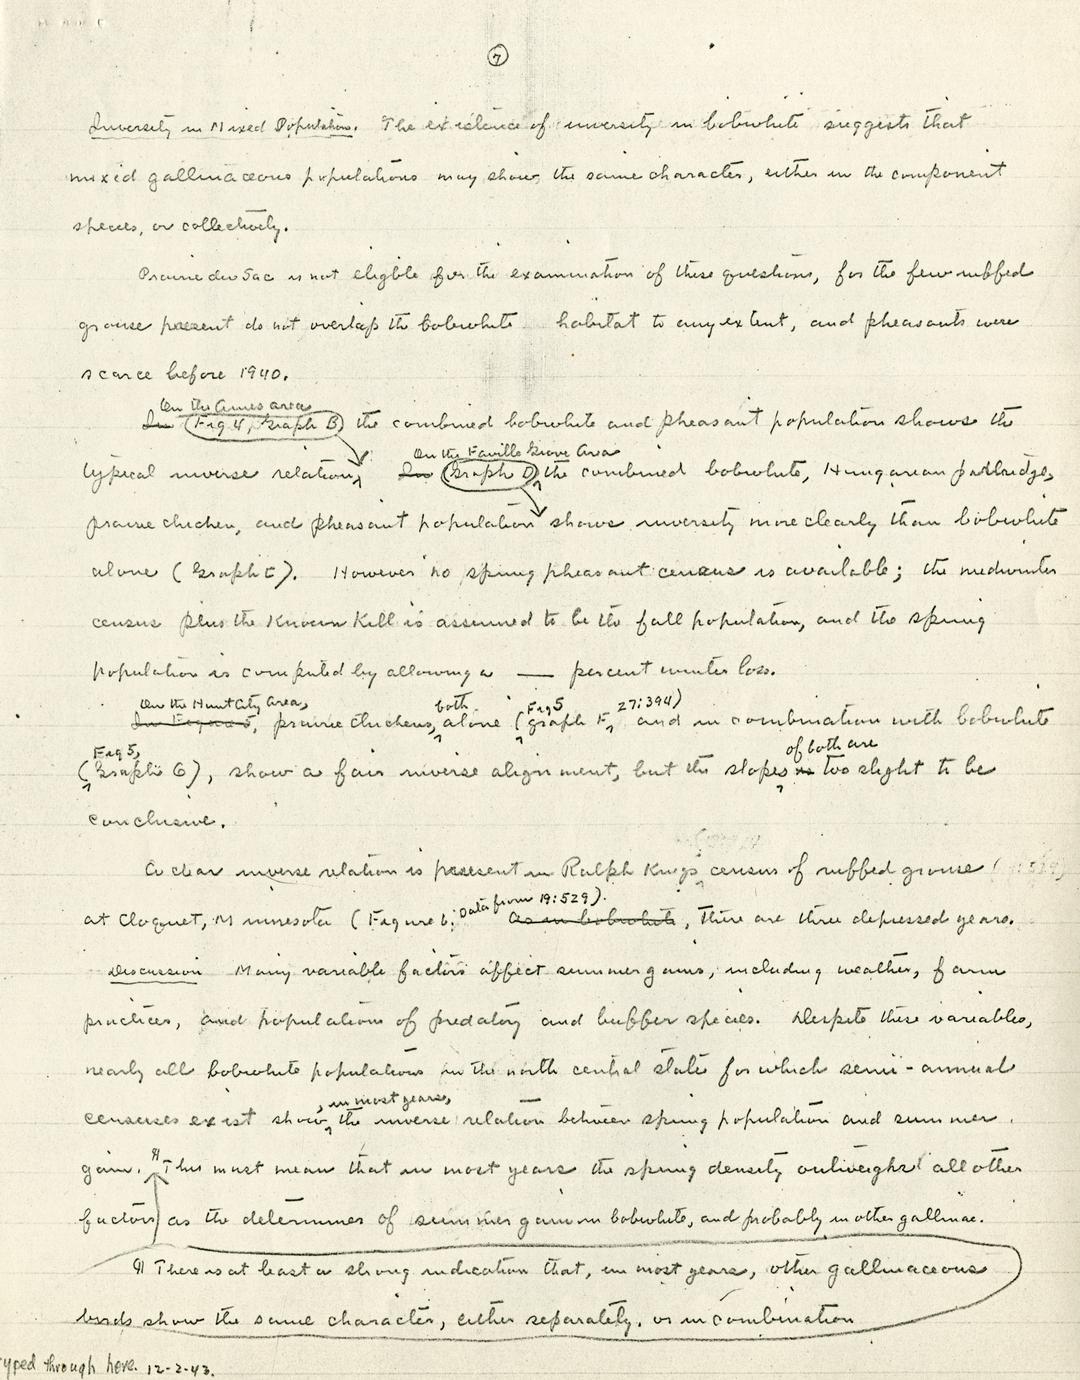 7
Inversity in Mixed Populations. The existence of inversity in bobwhite suggests that
mixed gallinaceous populations may show the same character, either in the component
species, or collectively.
Prairie du Sac is not eligible for the examination of these questions, for the few ruffed
grouse present do not overlap the bobwhite habitat to any extent, and pheasants were
scarce before 1940.
On the Ames area
In (Fig 4, Graph B) the combined bobwhite and pheasant population shows the
On the Faville Grove Area
typical inverse relation, In (Graph D) the combined bobwhite, Hungarian partridge,
prairie chicken, and pheasant population shows inversity more clearly than bobwhite
alone (Graph E). However no spring pheasant census is available; the midwinter
census plus the known kill is assumed to be the fall population, and the spring
population is computed by allowing a — percent winter loss.
On the Hunt City Area, both Fig 5 27:394)
In Figure 5, prairie chickens, alone (graph F, and in combination with bobwhite
Fig 5, of both are
(Graph G), show a fair inverse alignment, but the slopes is too slight to be
conclusive.
A clear inverse relation is present in Ralph King's census of ruffed grouse (19:529)
Data from 19:529).
at Cloquet, Minnesota (Figure 6; As in bobwhite, there are three depressed years.
Discussion Many variable factors affect summer gains, including weather, farm
practices, and populations of predatory and buffer species. Despite these variables,
nearly all bobwhite populations in the north central states for which semi-annual
, in most years,
censuses exist show the inverse relation between spring population and summer
gain. ¶ This must mean that in most years the spring density outweighs all other
factors as the determiner of summer gain in bobwhite, and probably in other gallinae.
¶ There is at least a strong indication that, in most years, other gallinaceous
birds show the same character, either separately, or in combination
typed through here. 12-2-43.